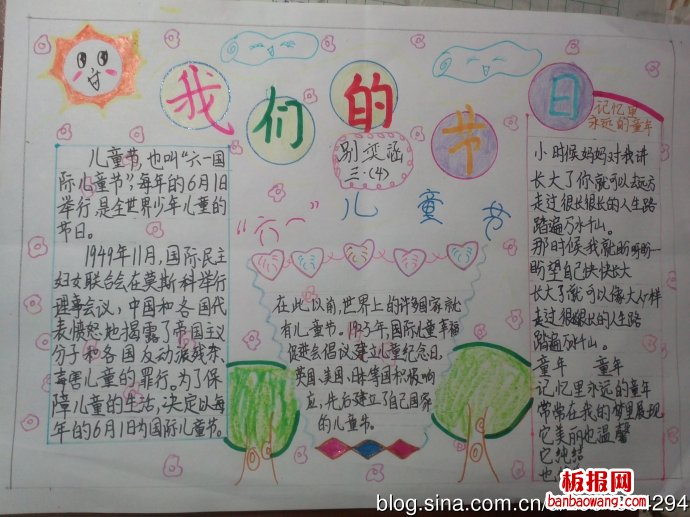 我们的节日
别奕涵
三·(4)
“六一”儿童节
儿童节,也叫“六一国
际儿童节”,每年的6月1日
举行,是全世界少年儿童的
节日。
1949年11月,国际民主
妇女联合会在莫斯科举行
理事会议,中国和各国代
表愤怒地揭露了帝国主义
分子和各国反动派残杀、
毒害儿童的罪行。为了保
障儿童的生活,决定以每
年的6月1日为国际儿童节。
在此以前,世界上的许多国家就
有儿童节。1925年,国际儿童幸福
促进会倡议建立儿童纪念日,
英国、美国、日本等国积极响
应,先后建立了自己国家
的儿童节。
记忆里
永远的童年
小时候妈妈对我讲
长大了你就可以去远方
走过很长很长的人生路
踏遍万水千山。
那时候我就盼呀盼
盼望自己快快长大
长大了就可以像大人一样
走过很长很长的人生路
踏遍万水千山。
童年 童年
记忆里永远的童年
常常在我的梦里展现
它美丽也温馨
它纯洁
也
板报网
banbaowang.com
blog.sina.com.cn/
4294